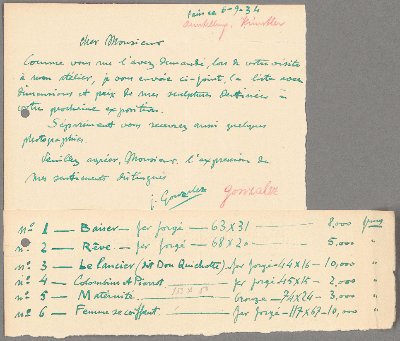 Paris ce 6-9-34
Ausstellung. Künstler
Cher Monsieur
Comme vous me l'avez demandé, lors de votre visite
à mon atelier, je vous envoie ci-joint, la liste avec
dimensions et prix de mes sculptures destinées à
votre prochaine exposition.
Séparément vous recevrez aussi quelques
photographies.
Veuillez agréer, Monsieur, l'expression de
mes sentiments distingués
J. Gonzalez
gonzalez
nº 1 — Baiser — fer forgé — 63 X 31 — 8,000 francs
nº 2 — Rêve — fer forgé — 68 X 20 — 5,000 "
nº 3 — Le Lancier (dit Don Quichotte) — fer forgé — 44 X 16 — 10,000 "
nº 4 — Colombin et Pierrot — fer forgé — 45 X 15 — 2,000 "
nº 5 — Maternité — bronze — 74 X 24 — 3,000 "
nº 6 — Femme se coiffant — fer forgé — 117 X 67 — 10,000 "